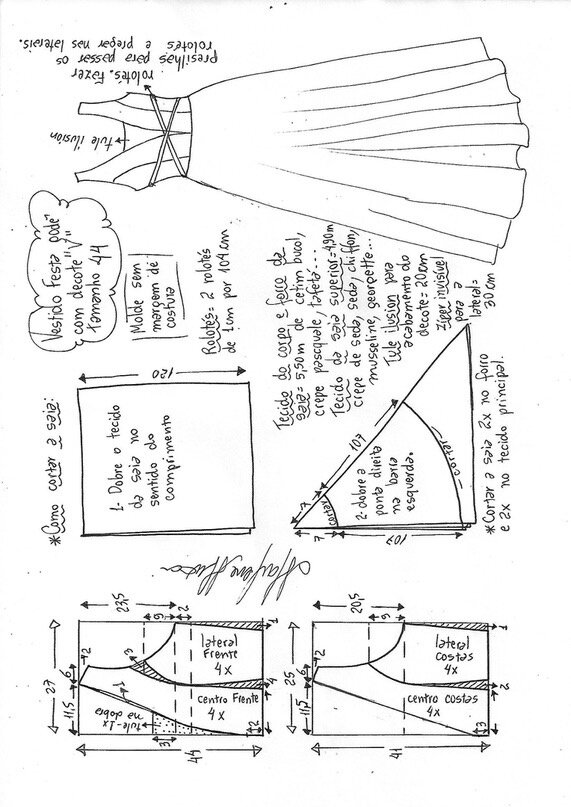 rolotés. Fazer
presilhas para passar os
rolotés e pregar nas laterais.
tule ilusión
Vestido festa pode
com decote "V"
Tamanho 44
Molde sem
margem de
costura
Rolotés = 2 rolotés
de 1cm por 104cm.
Tecido do corpo e forro da
saia = 5,50m de cetim bucol,
crepe pasquale, tafetá...
Tecido da saia superior = 4,90m
crepe de seda, seda, chiffon,
musseline, georgette...
Tule ilusion para
acabamento do
decote = 20cm
Zíper invisível
para a
lateral =
30cm
*Como cortar a saia:
120
1- Dobre o tecido
da saia no
sentido do
comprimento
7
107
cortar
2- dobre a
ponta direita
na barra
esquerda.
cortar
7
107
*Cortar a saia 2x no forro
e 2x no tecido principal.
Marlene Mukai
27
6
11,5
23,5
9
2
2
3
1
lateral
Frente
4x
centro Frente
4x
tule-1x
na dobra
3
1
4
2
44
25
6
11,5
20,5
9
2
lateral
costas
4x
centro costas
4x
1
2
3
41